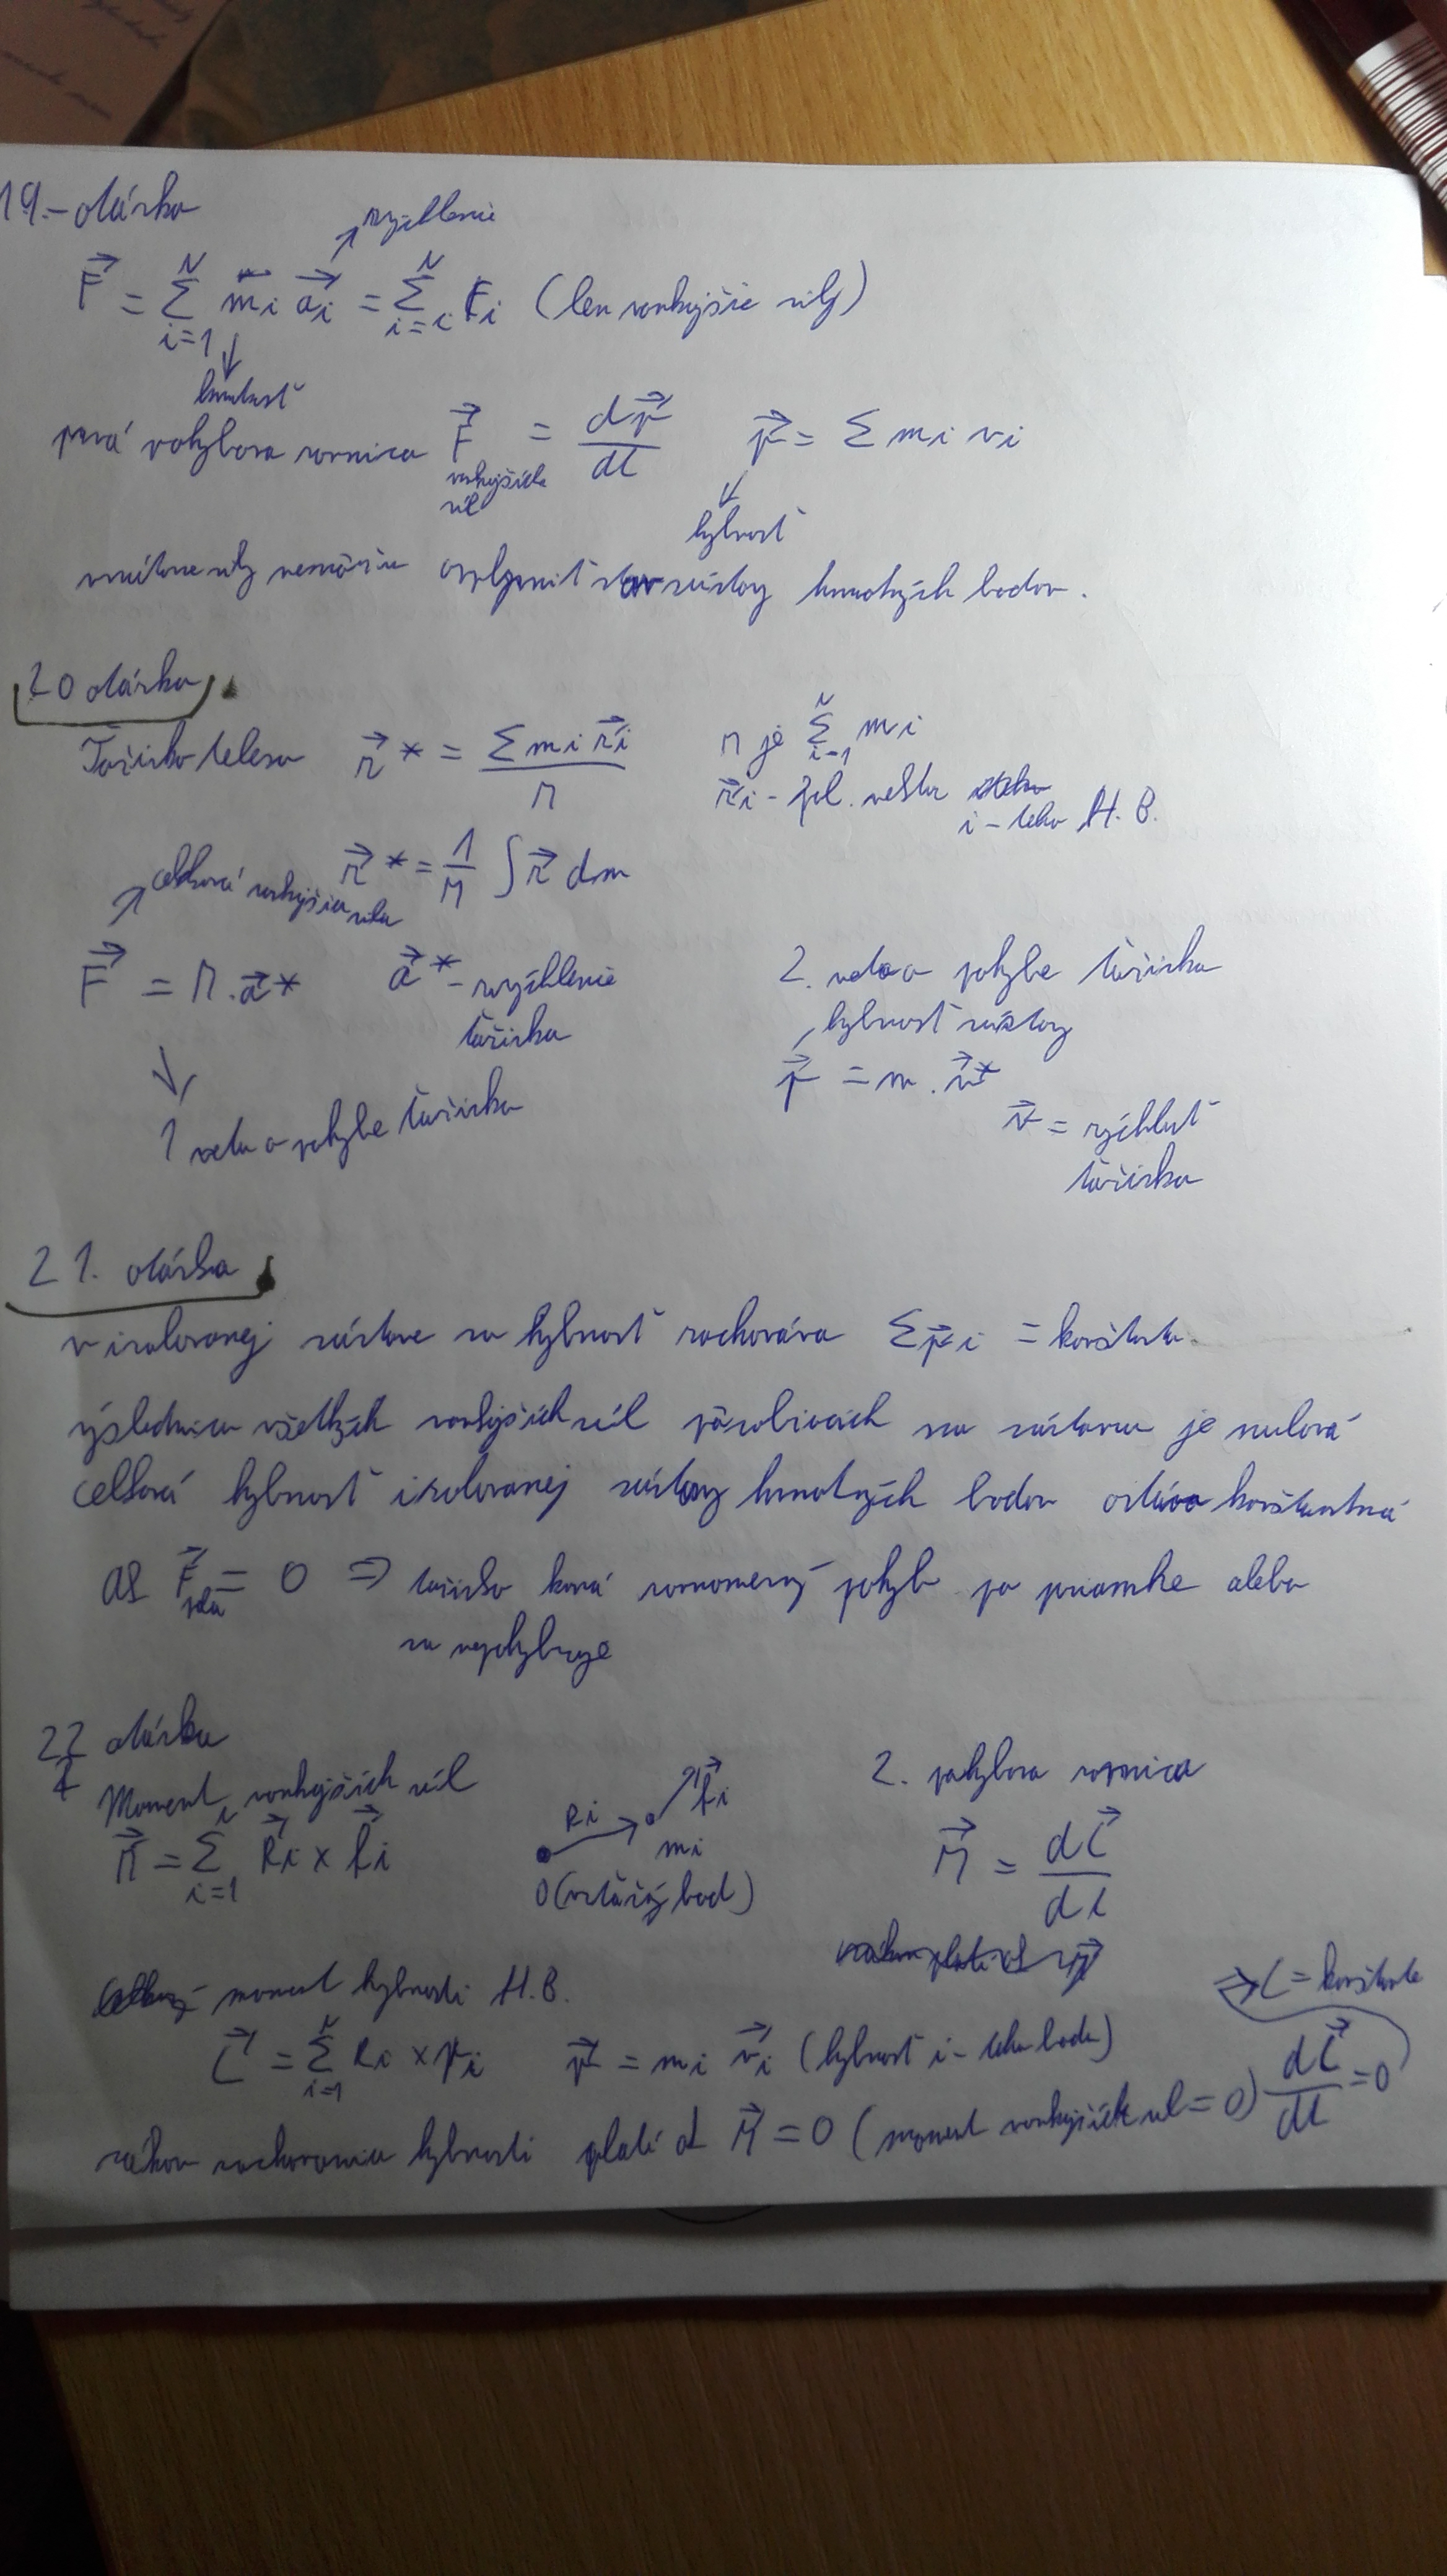 19.- otázka
zrýchlenie
F = Σ mi ai = Σ Fi (len vonkajšie sily)
N i=1 N i=i
hmotnosť
prvá pohybova rovnica F = dp/dt p = Σ mi vi
vonkajšich síl
hybnosť
vnútorne sily nemôžu ovplyvniť stav sústavy hmotných bodov.
20 otázka
Ťažisko telesa r* = Σ mi ri / M M je Σ mi
N i=1
ri - pol. vektor
i-teho H.B.
r* = 1/M ∫ r dm
celková vonkajšia sila
F = M.a* a* - zrýchlenie ťažiska
1 veta o pohybe ťažiska
2. veta o pohybe ťažiska
hybnosť sústavy
p = m.v*
v = rýchlosť
ťažiska
21. otázka
v izolovanej sústave sa hybnosť zachováva Σ pi = konštanta.
výslednica všetkých vonkajších síl pôsobiacich na sústavu je nulová
celková hybnosť izolovanej sústavy hmotných bodov ostáva konštantná
ak F = 0 => ťažisko koná rovnomerný pohyb po priamke alebo
sa nepohybuje
22 otázka
Moment vonkajších síl
M = Σ Ri x fi
i=1
Ri fi
mi
0 (vzťažný bod)
2. pohybova rovnica
M = dL/dt
moment hybnosti H.B.
L = Σ Ri x pi p = mi vi (hybnosť i-teho bodu)
N i=1
zákon zachovania hybnosti platí ak M = 0 (moment vonkajších síl = 0) dL/dt = 0
=> L = konštanta